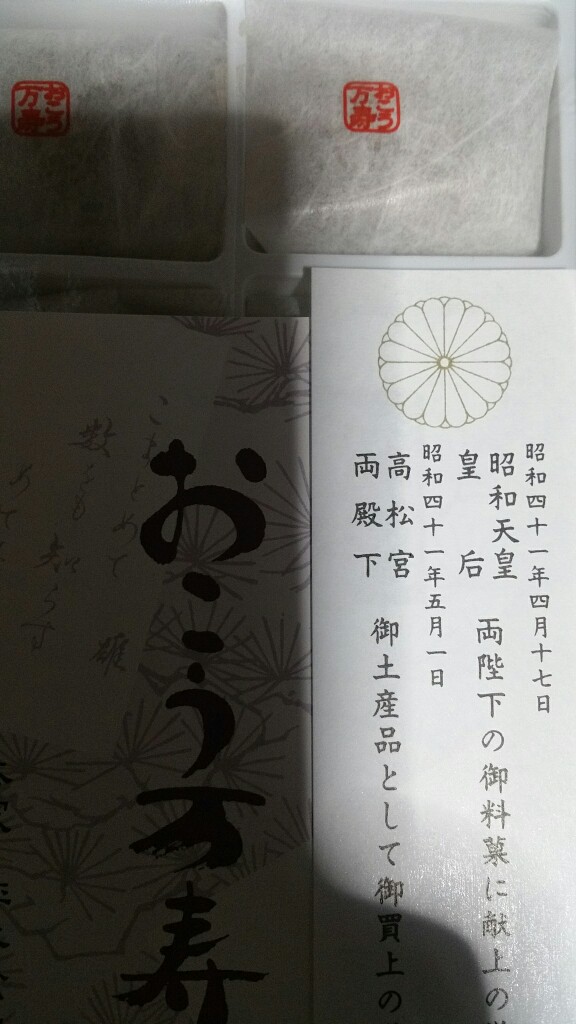 おこう
万寿
おこう
万寿
昭和四十一年四月十七日
昭和天皇
皇后
両陛下の御料菓に献上の
昭和四十一年五月一日
高松宮
両殿下
御土産品として御買上の
おこう万寿
数とも知らす